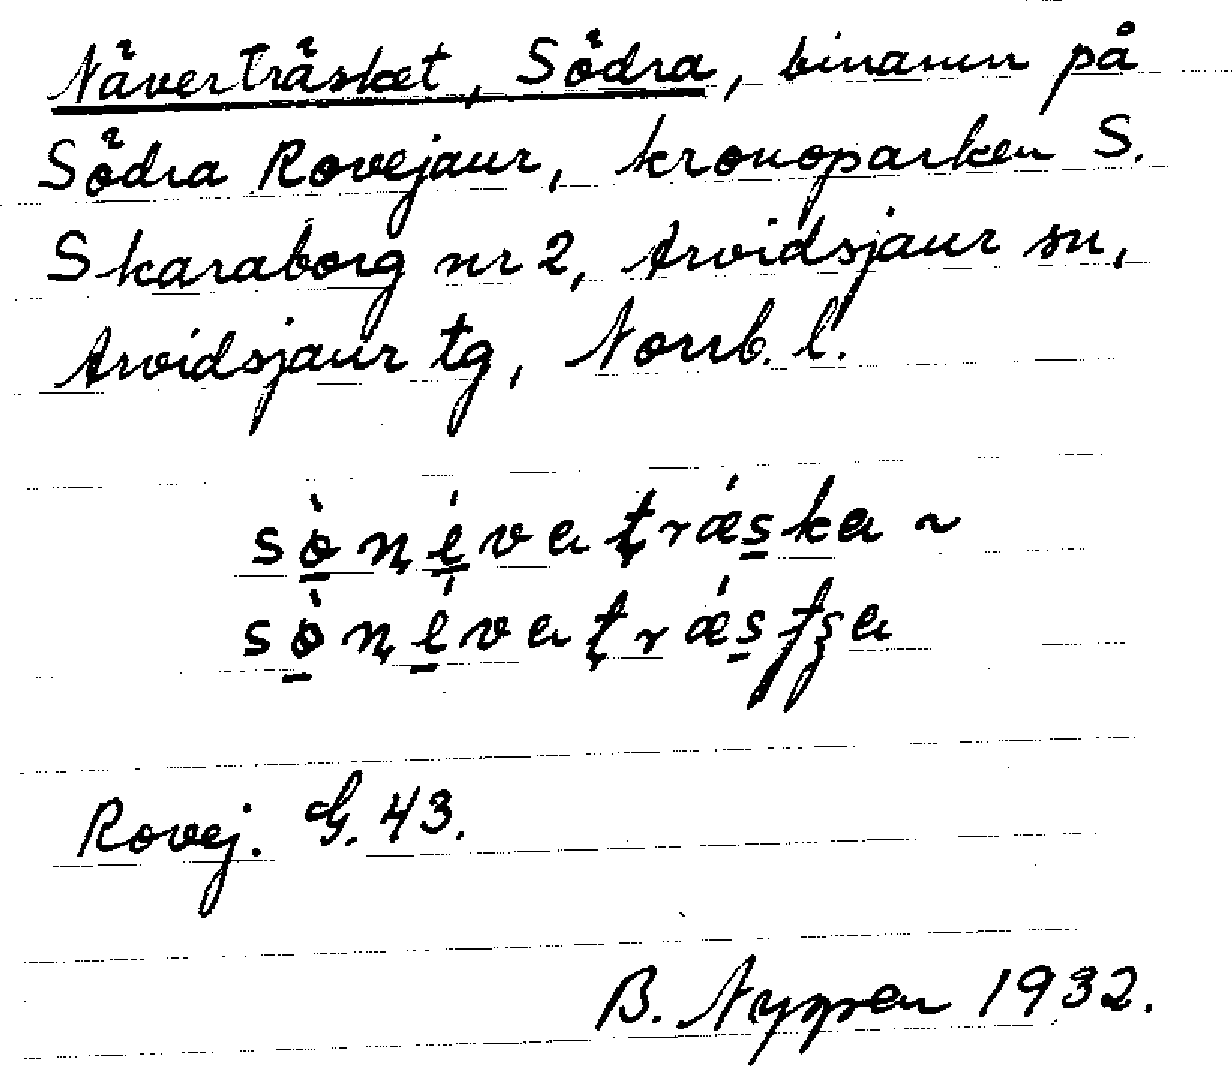 Näverträsket, Södra, binamn på
Södra Rovejaur, kronoparken S.
Skaraborg nr 2, Arvidsjaur sn,
Arvidsjaur tg, Norrb. l.
Rovej. G. 43.
B. Nyppen 1932.